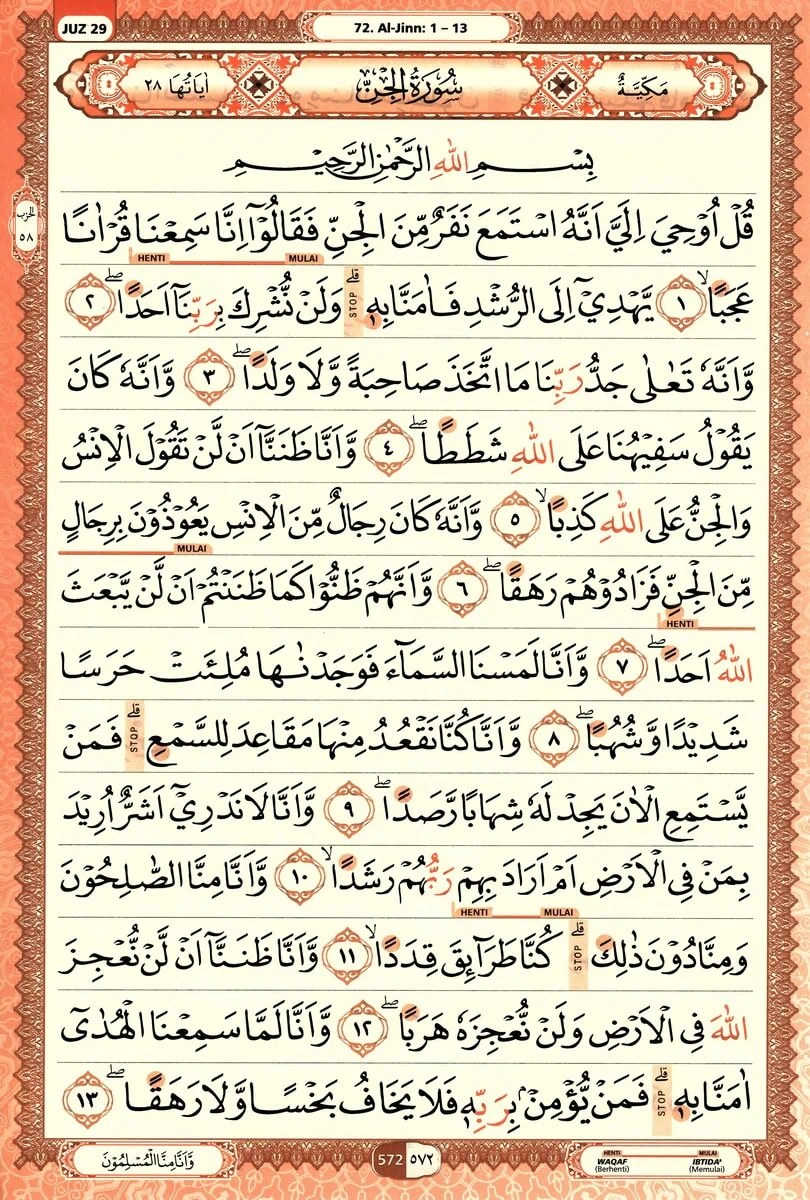 JUZ 29
72. Al-Jinn: 1 – 13
مَكِّيَّةٌ
سُورَةُ الْجِنِّ
اٰيَاتُهَا ٢٨
الحزب ٥٨
بِسْمِ اللّٰهِ الرَّحْمٰنِ الرَّحِيْمِ
قُلْ اُوْحِيَ اِلَيَّ اَنَّهُ اسْتَمَعَ نَفَرٌ مِّنَ الْجِنِّ فَقَالُوْٓا اِنَّا سَمِعْنَا قُرْاٰنًا
MULAI HENTI
عَجَبًاۙ ١ يَّهْدِيْٓ اِلَى الرُّشْدِ فَاٰمَنَّا بِهٖۗ قلى STOP وَلَنْ نُّشْرِكَ بِرَبِّنَآ اَحَدًاۖ ٢
وَّاَنَّهٗ تَعٰلٰى جَدُّ رَبِّنَا مَا اتَّخَذَ صَاحِبَةً وَّلَا وَلَدًاۖ ٣ وَّاَنَّهٗ كَانَ
يَقُوْلُ سَفِيْهُنَا عَلَى اللّٰهِ شَطَطًاۖ ٤ وَّاَنَّا ظَنَنَّآ اَنْ لَّنْ تَقُوْلَ الْاِنْسُ
وَالْجِنُّ عَلَى اللّٰهِ كَذِبًاۙ ٥ وَّاَنَّهٗ كَانَ رِجَالٌ مِّنَ الْاِنْسِ يَعُوْذُوْنَ بِرِجَالٍ
MULAI
مِّنَ الْجِنِّ فَزَادُوْهُمْ رَهَقًاۖ ٦ وَّاَنَّهُمْ ظَنُّوْا كَمَا ظَنَنْتُمْ اَنْ لَّنْ يَّبْعَثَ
HENTI
اللّٰهُ اَحَدًاۖ ٧ وَّاَنَّا لَمَسْنَا السَّمَاۤءَ فَوَجَدْنٰهَا مُلِئَتْ حَرَسًا
شَدِيْدًا وَّشُهُبًاۖ ٨ وَّاَنَّا كُنَّا نَقْعُدُ مِنْهَا مَقَاعِدَ لِلسَّمْعِ قلى STOP فَمَنْ
يَّسْتَمِعِ الْاٰنَ يَجِدْ لَهٗ شِهَابًا رَّصَدًاۖ ٩ وَّاَنَّا لَا نَدْرِيْٓ اَشَرٌّ اُرِيْدَ
بِمَنْ فِى الْاَرْضِ اَمْ اَرَادَ بِهِمْ رَبُّهُمْ رَشَدًاۙ ١٠ وَّاَنَّا مِنَّا الصّٰلِحُوْنَ
MULAI HENTI
وَمِنَّا دُوْنَ ذٰلِكَ قلى STOP كُنَّا طَرَاۤىِٕقَ قِدَدًاۙ ١١ وَّاَنَّا ظَنَنَّآ اَنْ لَّنْ نُّعْجِزَ
اللّٰهَ فِى الْاَرْضِ وَلَنْ نُّعْجِزَهٗ هَرَبًاۖ ١٢ وَّاَنَّا لَمَّا سَمِعْنَا الْهُدٰىٓ
اٰمَنَّا بِهٖ قلى STOP فَمَنْ يُّؤْمِنْۢ بِرَبِّهٖ فَلَا يَخَافُ بَخْسًا وَّلَا رَهَقًاۖ ١٣
وَّاَنَّا مِنَّا الْمُسْلِمُوْنَ
572 ٥٧٢
HENTI WAQAF (Berhenti)
MULAI IBTIDA' (Memulai)